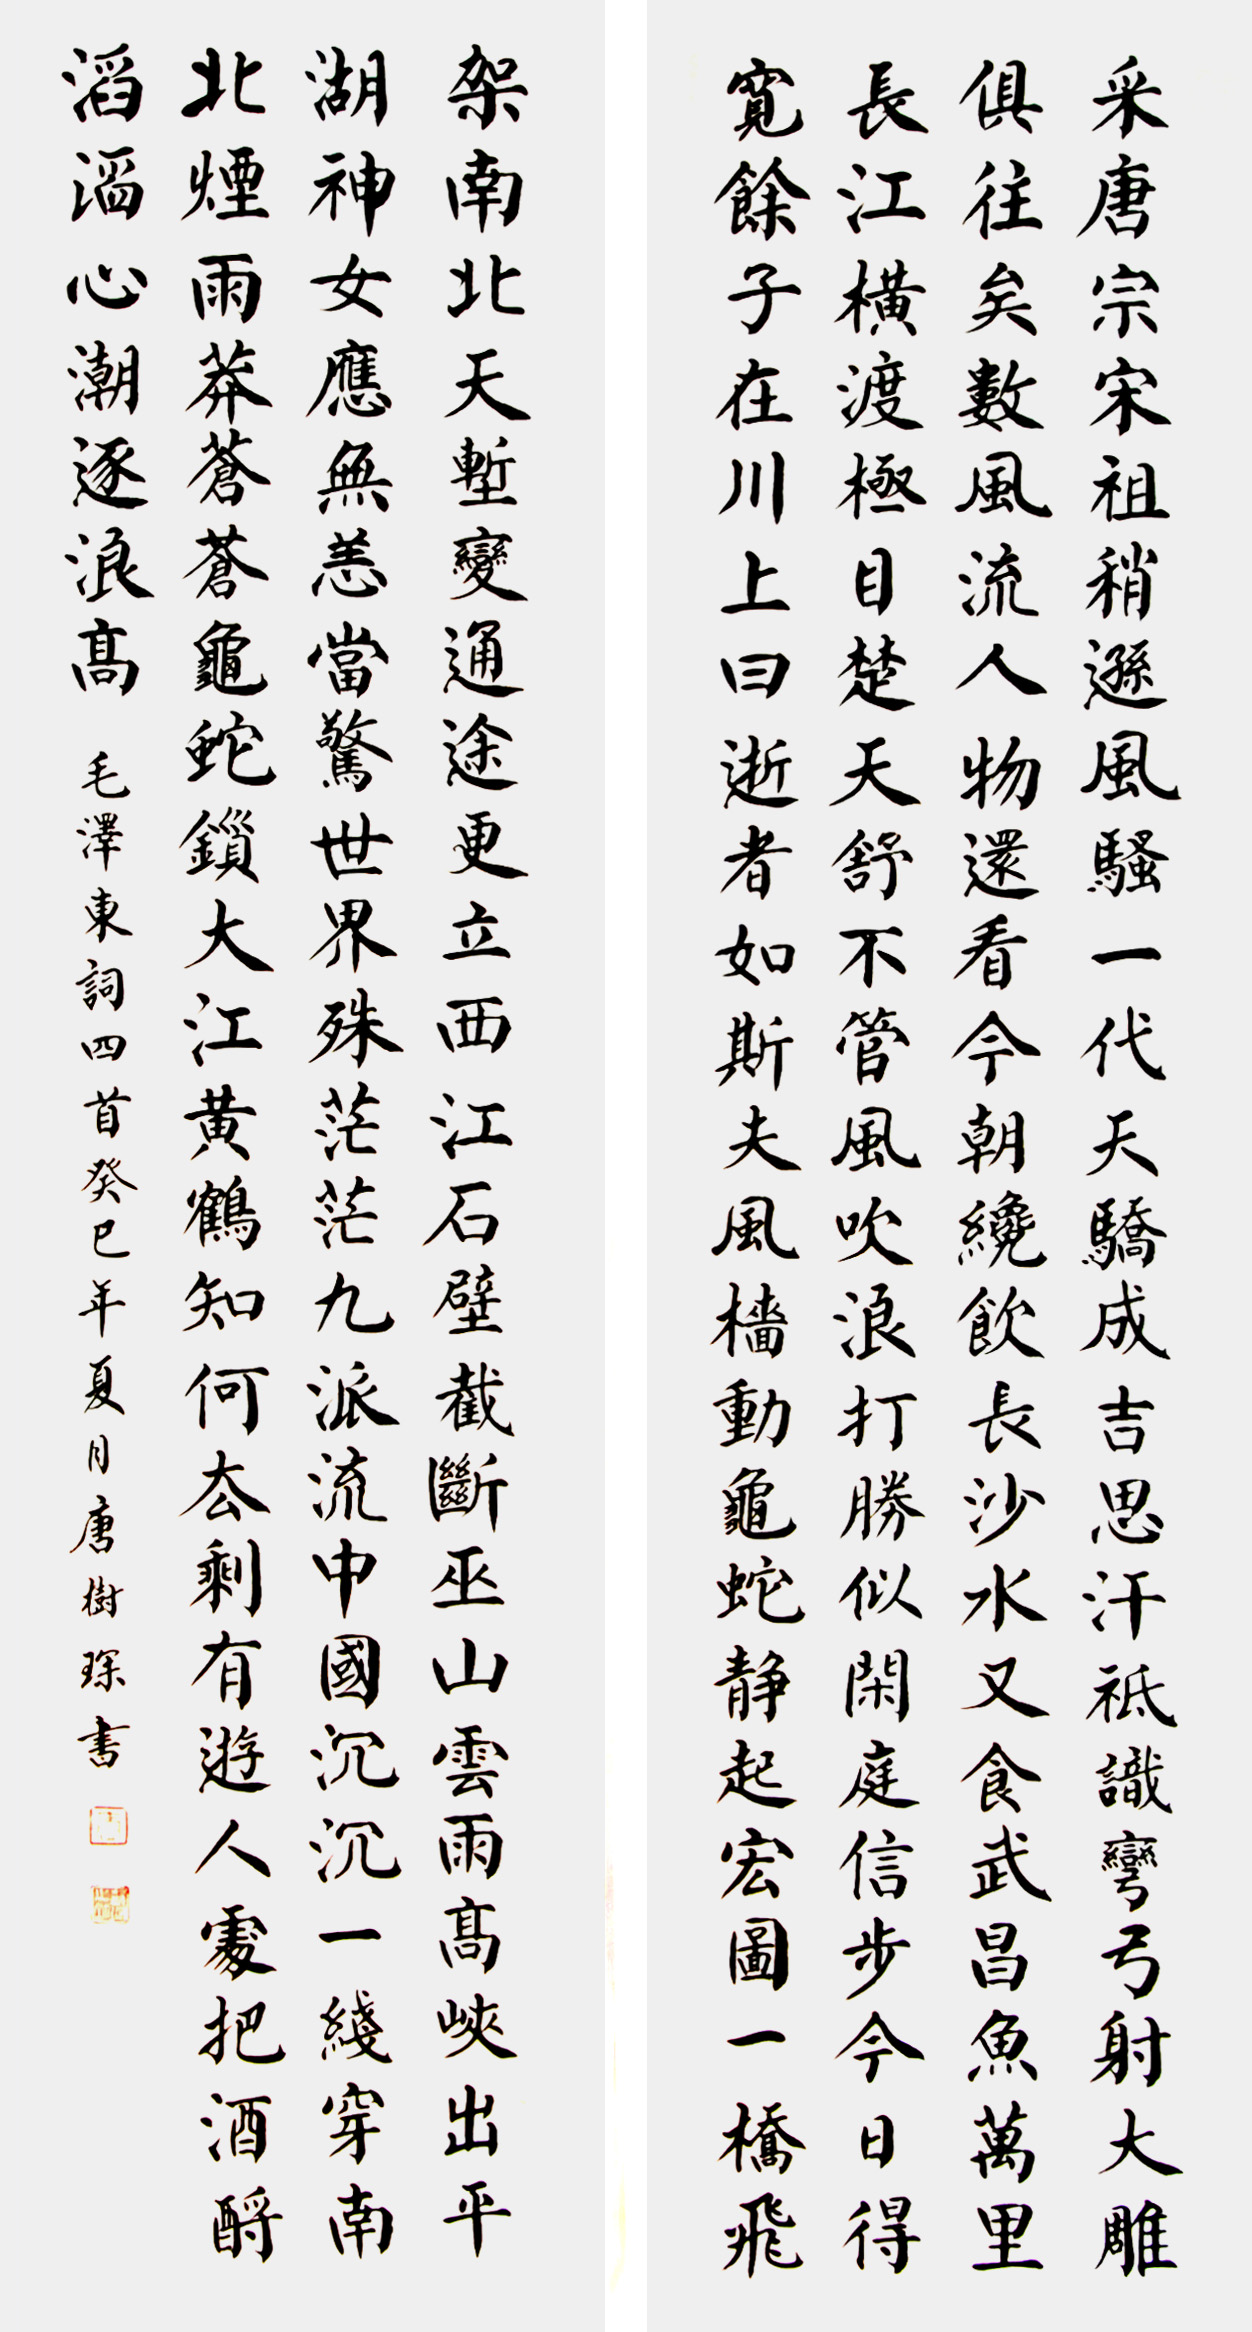 采唐宗宋祖稍遜風騷一代天驕成吉思汗祗識彎弓射大雕
俱往矣數風流人物還看今朝纔飲長沙水又食武昌魚萬里
長江橫渡極目楚天舒不管風吹浪打勝似閑庭信步今日得
寬餘子在川上曰逝者如斯夫風檣動龜蛇靜起宏圖一橋飛
架南北天塹變通途更立西江石壁截斷巫山雲雨高峽出平
湖神女應無恙當驚世界殊茫茫九派流中國沉沉一綫穿南
北煙雨莽蒼蒼龜蛇鎖大江黃鶴知何去剩有遊人處把酒酹
滔滔心潮逐浪高
毛澤東詞四首癸巳年夏月唐樹琛書